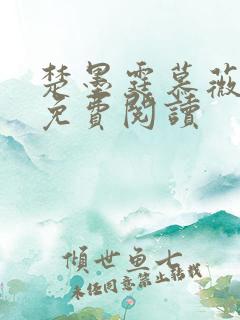 楚墨霆慕薇
免費閱讀
傾世魚七
未經同意禁止轉載